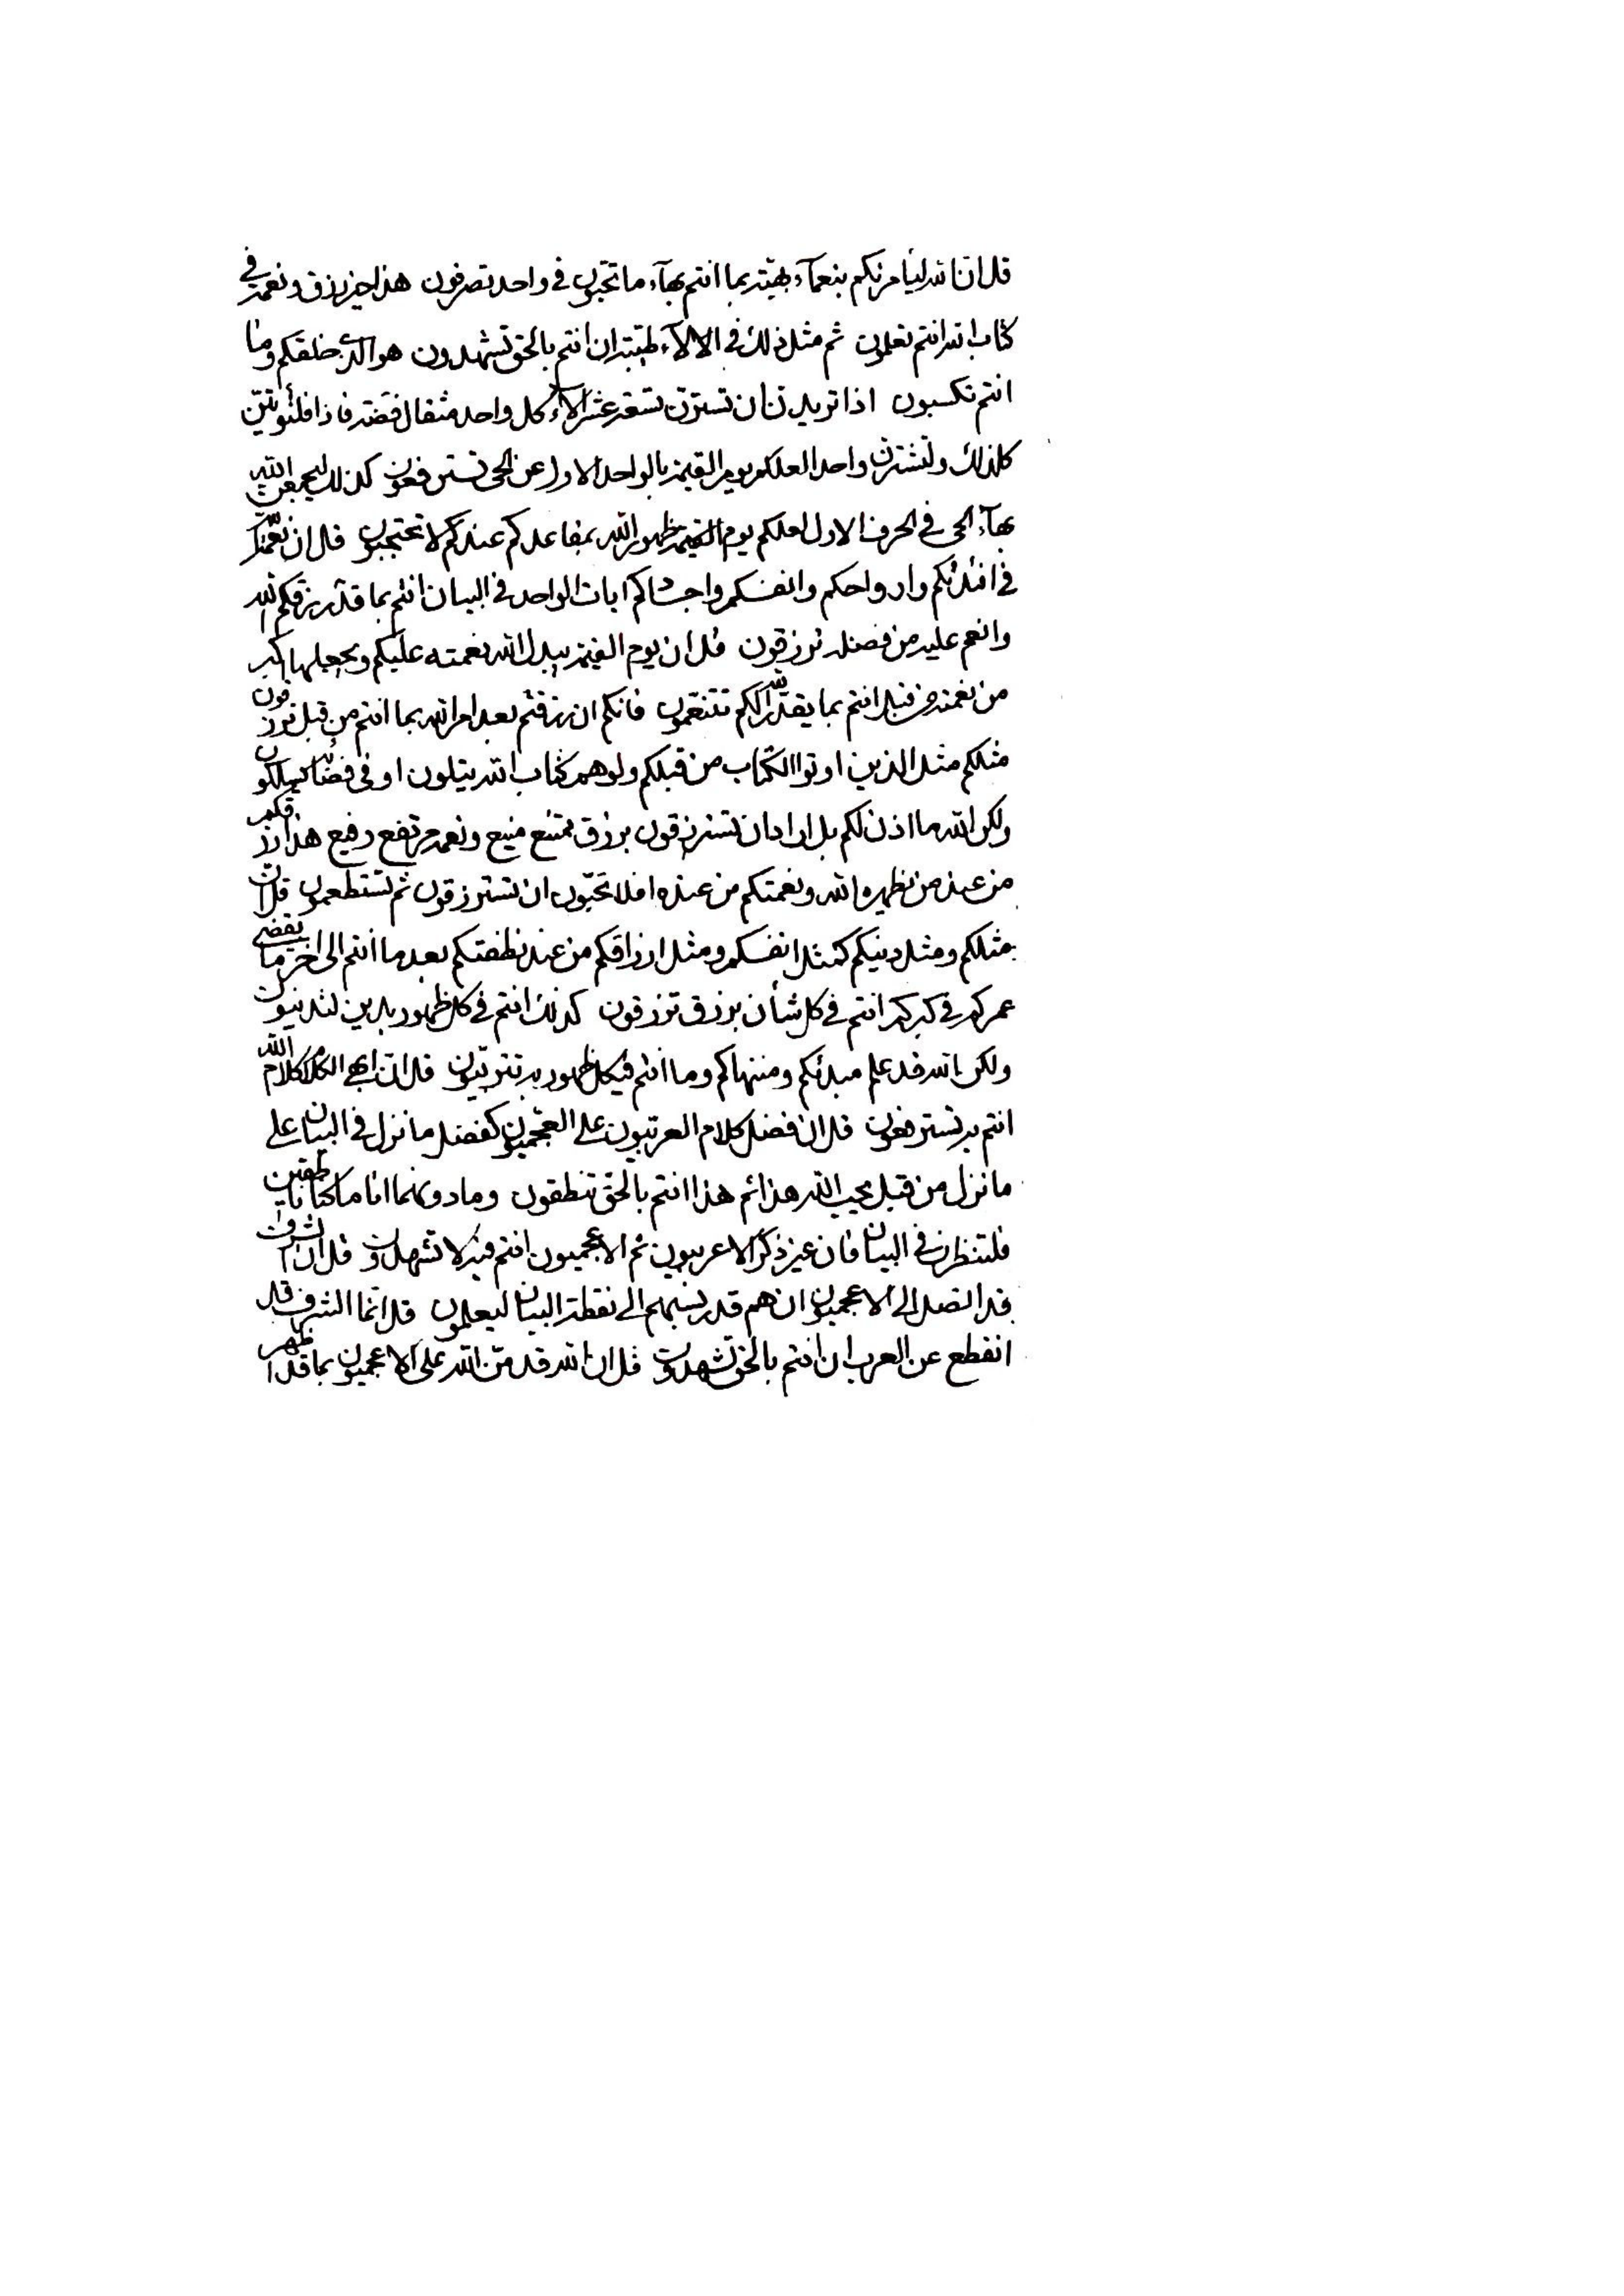 قل ان الله ليأمرنكم بنعمآء بهيّة بما انتم بهآء ما تحبّون في واحد تصرفون هذا خير رزق ونعمة في
كتاب الله انتم تعلمون ثم مثل ذلك في الالآء طيّبة ان انتم بالحق تشهدون هو الذي خلقكم وما
انتم تكسبون اذا تريدنّ ان تسترن تسعة عشر آلآء كل واحد مثقال فضة فاذا فلتؤتينّ
كذلك ولتشترن واحدا لعلكم يوم القيمة بالواحد الاول عن الحي تسترفعون كذلك ليجمعن الله
بهآء الحي في الحرف الاول لعلكم يوم القيمة ظهور الله بمقاعدكم عندكم لا تحتجبون قل ان نعمتكم
في افئدتكم وارواحكم وانفسكم واجسادكم ايات الواحد في البيان انتم بما قد رزقكم الله
وانعم عليه من فضله ترزقون قل ان يوم القيمة يبدل الله نعمته عليكم ويجعلها اكبر
من نعمته من قبل انتم بما يقدّر الله لكم تتنعمون فانكم ان رزقتم بعد امر الله بما انتم من قبل ترزقون
مثلكم مثل الذين اوتوا الكتاب من قبلكم ولو هم كتاب الله يتلون او في فضائه يسلكون
ولكن الله ما اذن لكم بل اراد ان تسترزقون برزق ممتنع منيع ونعمة مرتفع رفيع هذا رزقكم
من عند من يظهره الله ونعمتكم من عنده افلا تحبّون ان تسترزقون ثم تستطعمون قل ان
مثلكم ومثل دينكم كمثل انفسكم ومثل ارزاقكم من عند نطفتكم بعد ما انتم الى اخر ما يقضي
عمركم في كبركم انتم في كل شأن برزق ترزقون كذلك انتم في كل ظهور بدين لتدينون
ولكن الله قد علم مبدئكم ومنتهاكم وما انتم في كل ظهور به تتربّيون قل ان ابهى الكلام كلام الله
انتم به تسترفعون قل ان فضل كلام العربّيون على العجميون كفضل ما نزل في البيان على
ما نزل من قبل يحب الله هذا ثم هذا انتم بالحق تنطقون وما دونهما انا ما كنا ناطقين
فلتنظرن في البيان فان غير ذكر الاعربيون ثم الاعجميون انتم فيه لا تشهدون قل ان الشرف
قد اتصل الى الاعجميون ان هم قدر نسبتهم الى نقطة البيان ليعلمون قل انما الشرف قد
انقطع عن العرب ان انتم بالحق تشهدون قل ان الله قد منّ الله على الاعجميون بما قد اظهر